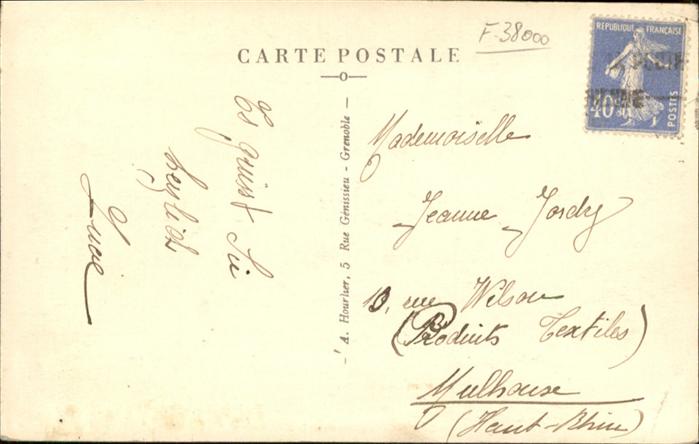 F-38000
CARTE POSTALE
REPUBLIQUE FRANÇAISE
POSTES
40c
Es grüsst Sie
herzlich
Lucie
A. Hourlier, 5 Rue Génissieu - Grenoble
Mademoiselle
Jeanne Jordy
10, rue Wilson
(Produits Textiles)
Mulhouse
(Haut-Rhin)